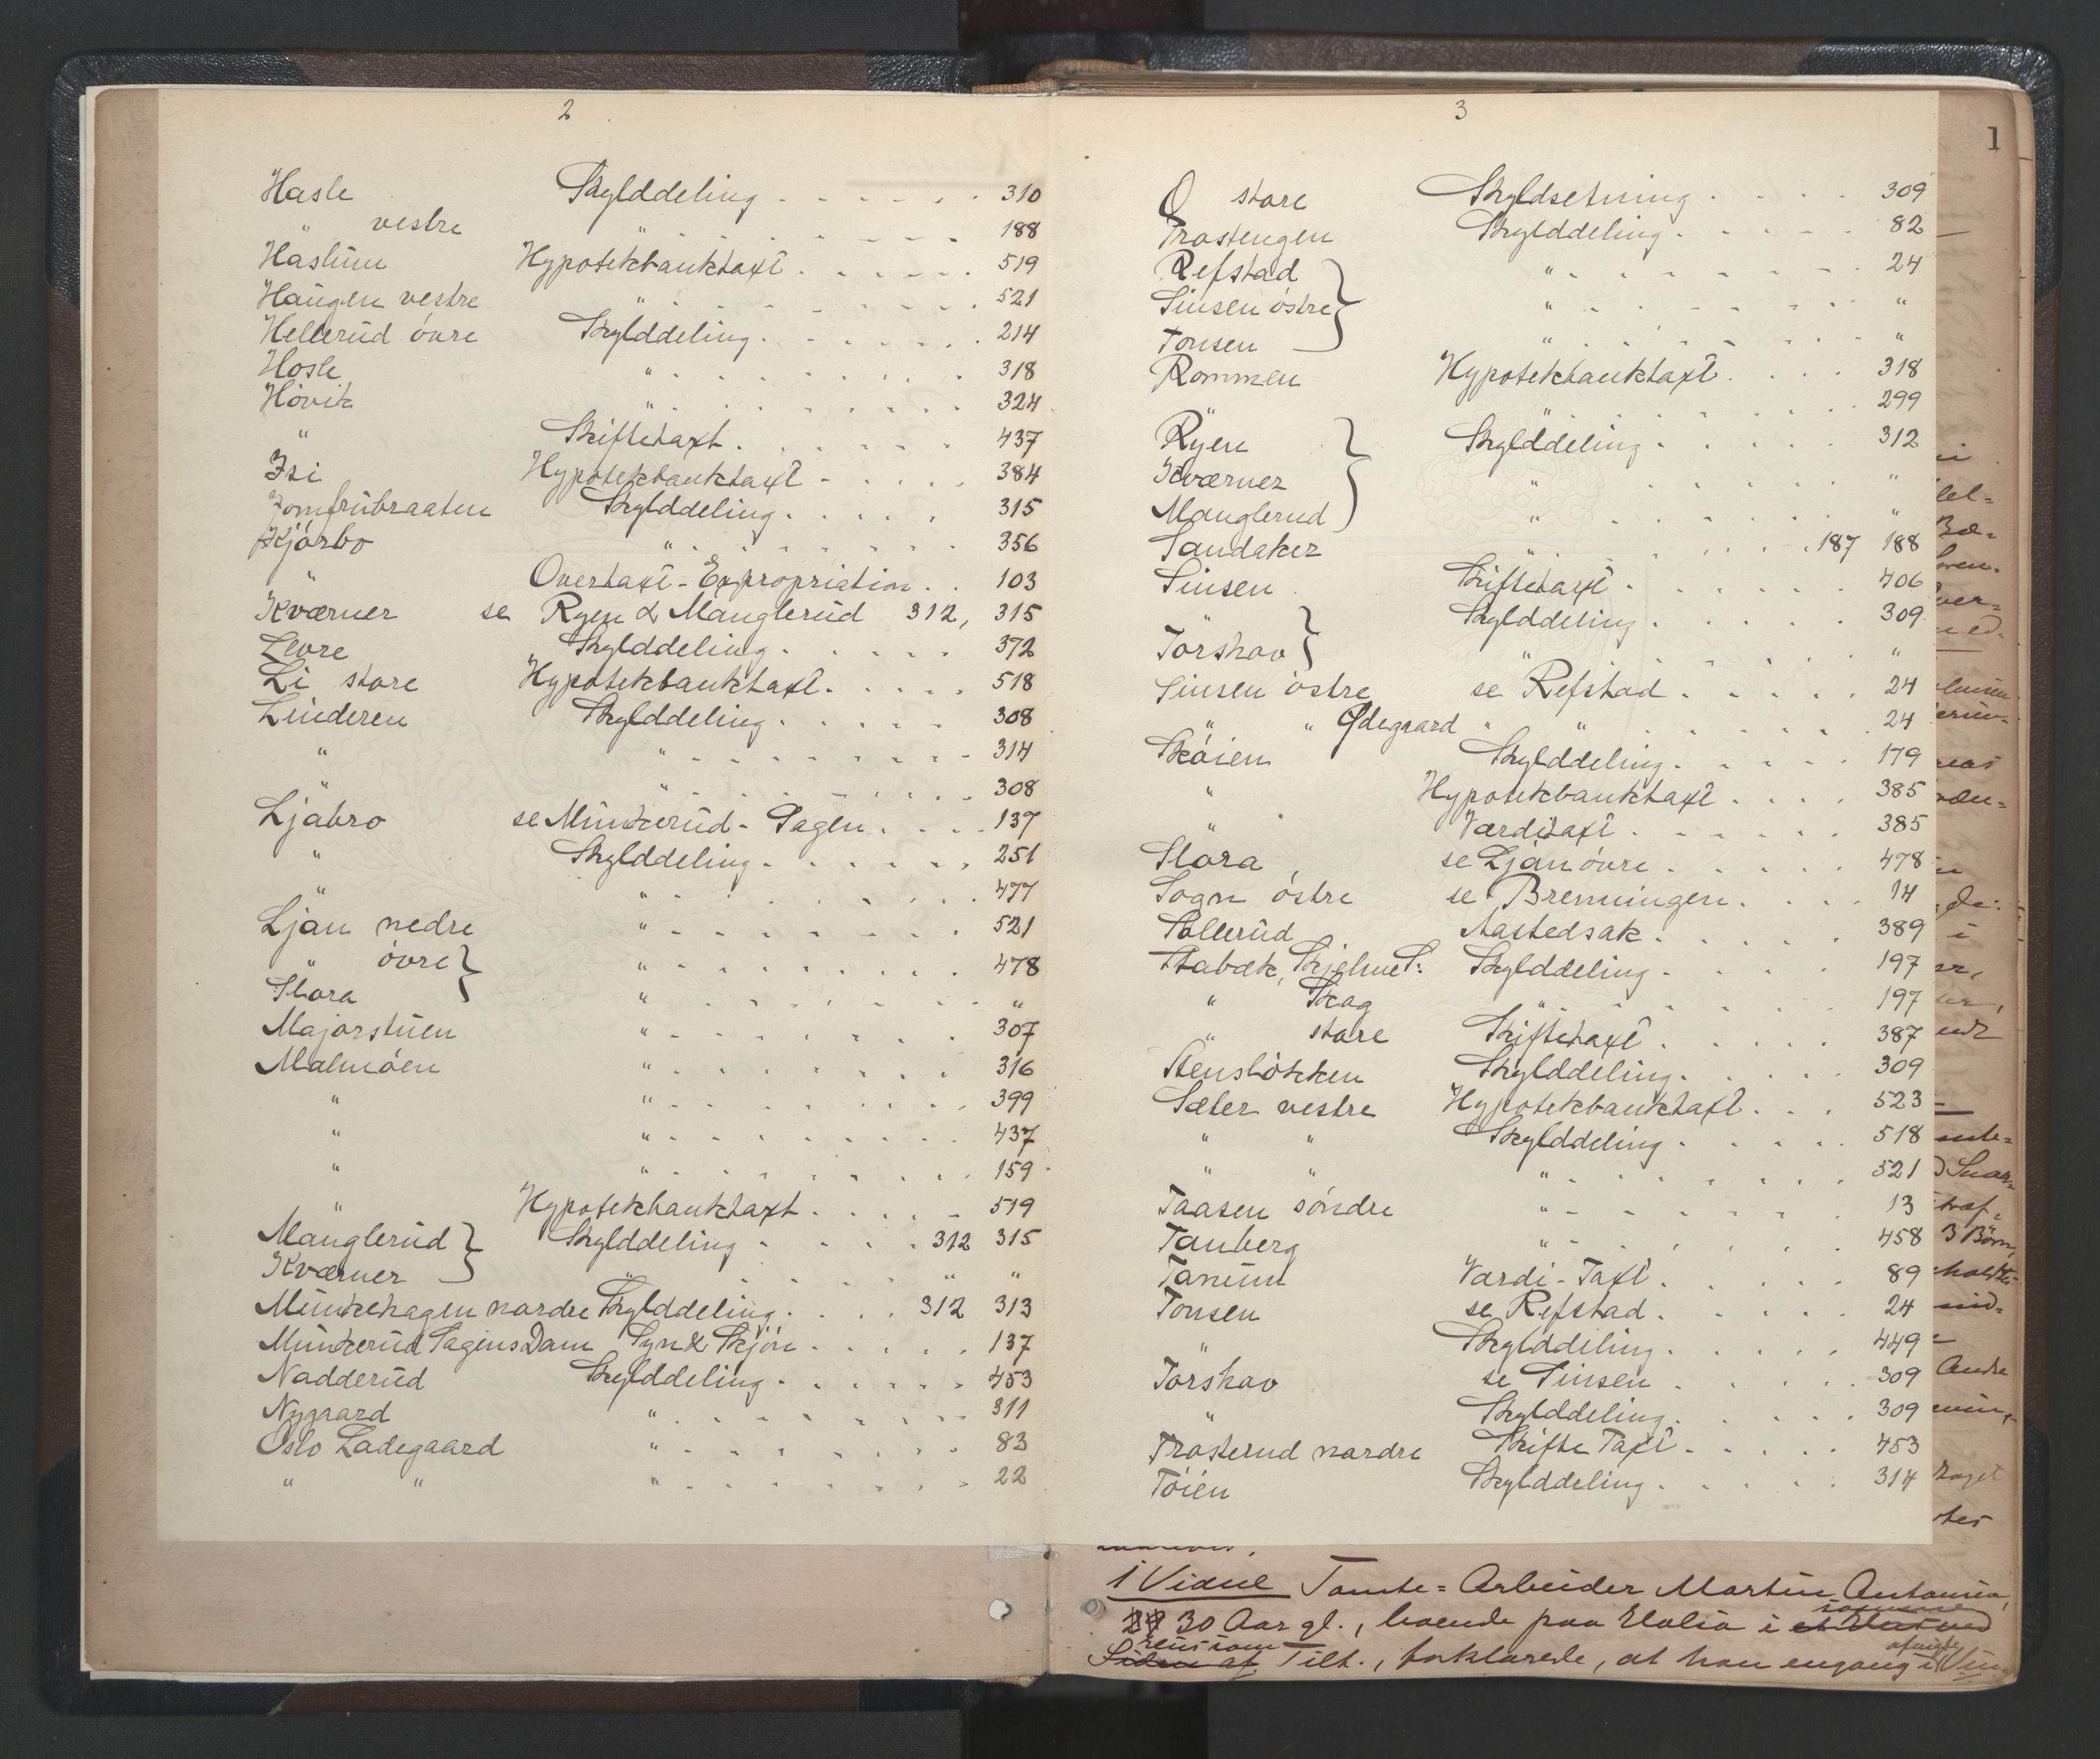 2
Hasle Skylddeling - - - - - - 310
" vestre " - - - - - - - 188
Haslum Hypotekbanktaxt . . . . . . 519
Haugen vestre " . . . . . . . 521
Hellerud övre Skylddeling . . . . . . . 214
Hosle " . . . . . . . . . 318
Hövik " . . . . . . . . . 324
" Skiftetaxt . . . . . . . 437
Isi Hypotekbanktaxt - . . . . 384
Jomfrubraaten Skylddeling . . . . . 315
Kjörbo " . . . . . . . . . 356
" Overtaxt - Expropriation . . 103
Kværner se Ryen & Manglerud 312, 315
Levre Skylddeling . . . . . . 372
Li store Hypotekbanktaxt . . . . . 518
Linderen Skylddeling . . . . . 308
" " . . . . . . . . . 314
" " . . . . . . . . . 308
Ljabro se Munkerud - Sagen . . . . 137
" Skylddeling . . . . . . . 251
" " . . . . . . . . . 477
Ljan nedre " . . . . . . . . . 521
" övre } " . . . . . . . . . 478
Slora } " . . . . . . . . . "
Majorstuen " . . . . . . . . . 307
Malmöen " . . . . . . . . . 316
" " . . . . . . . . . 399
" " . . . . . . . . . 437
" " . . . . . . . . . 159
" Hypotekbanktaxt . . . . . 519
Manglerud } Skylddeling . . . . . 312 315
Kværner } " . . . . . " "
Munkehagen nordre Skylddeling . . . . 312 313
Munkerud Sagens Dam Syn & Skjön . . . . . . 137
Nadderud Skylddeling . . . . . . 453
Nygaard " . . . . . . . . . 311
Oslo Ladegaard " . . . . . . . . . 83
" " " . . . . . . . . . 22
3
Ø store Skyldsetning . . . . 309
Prostengen Skylddeling . . . . . 82
Refstad } " . . . . . . . 24
Sinsen östre } " . . . . . . . "
Tonsen } " . . . . . . . "
Rommen Hypotekbanktaxt . . . . 318
" " . . . . 299
Ryen } Skylddeling . . . . . 312
Kværner } " . . . . . . "
Manglerud } " . . . . . . "
Sandaker " . . . . . 187 188
Sinsen Skiftetaxt . . . . . . 406
} Skylddeling . . . . . 309
Torshov } " . . . . . . "
Sinsen östre se Refstad . . . . . 24
" " Ødegaard " " . . . . . 24
Sköien Skylddeling . . . . . 179
" Hypotekbanktaxt . . . . 385
" Værditaxt . . . . . . 385
Slora se Ljan övre . . . . . 478
Sogn östre se Brenningen . . . . 14
Sollerud Aastedsak . . . . . 389
Stabæk, Skjelmer S: Skylddeling . . . . 197
" Skog " . . . . . . 197
" store Skiftetaxt . . . . . 387
Stenslökken Skylddeling . . . . . 309
Sæter vestre Hypotekbanktaxt . . . 523
" " Skylddeling . . . . . 518
" " " . . . . . . . 521
Taasen söndre " . . . . . . . 13
Tanberg " . . . . . . . 458
Tanum Værdi - Taxt . . . . . 89
Tonsen se Refstad . . . . . 24
" Skylddeling . . . . . 449
Torshov se Sinsen . . . . . 309
" Skylddeling . . . . . 309
Trosterud nordre Skifte Taxt . . . . . 453
Töien Skylddeling . . . . . 314
1
1 Vidne Tomte = Arbeider Martin Antonio,
30 Aar gl., boende paa Utalia i
Tilt., forklarede, at han engang i